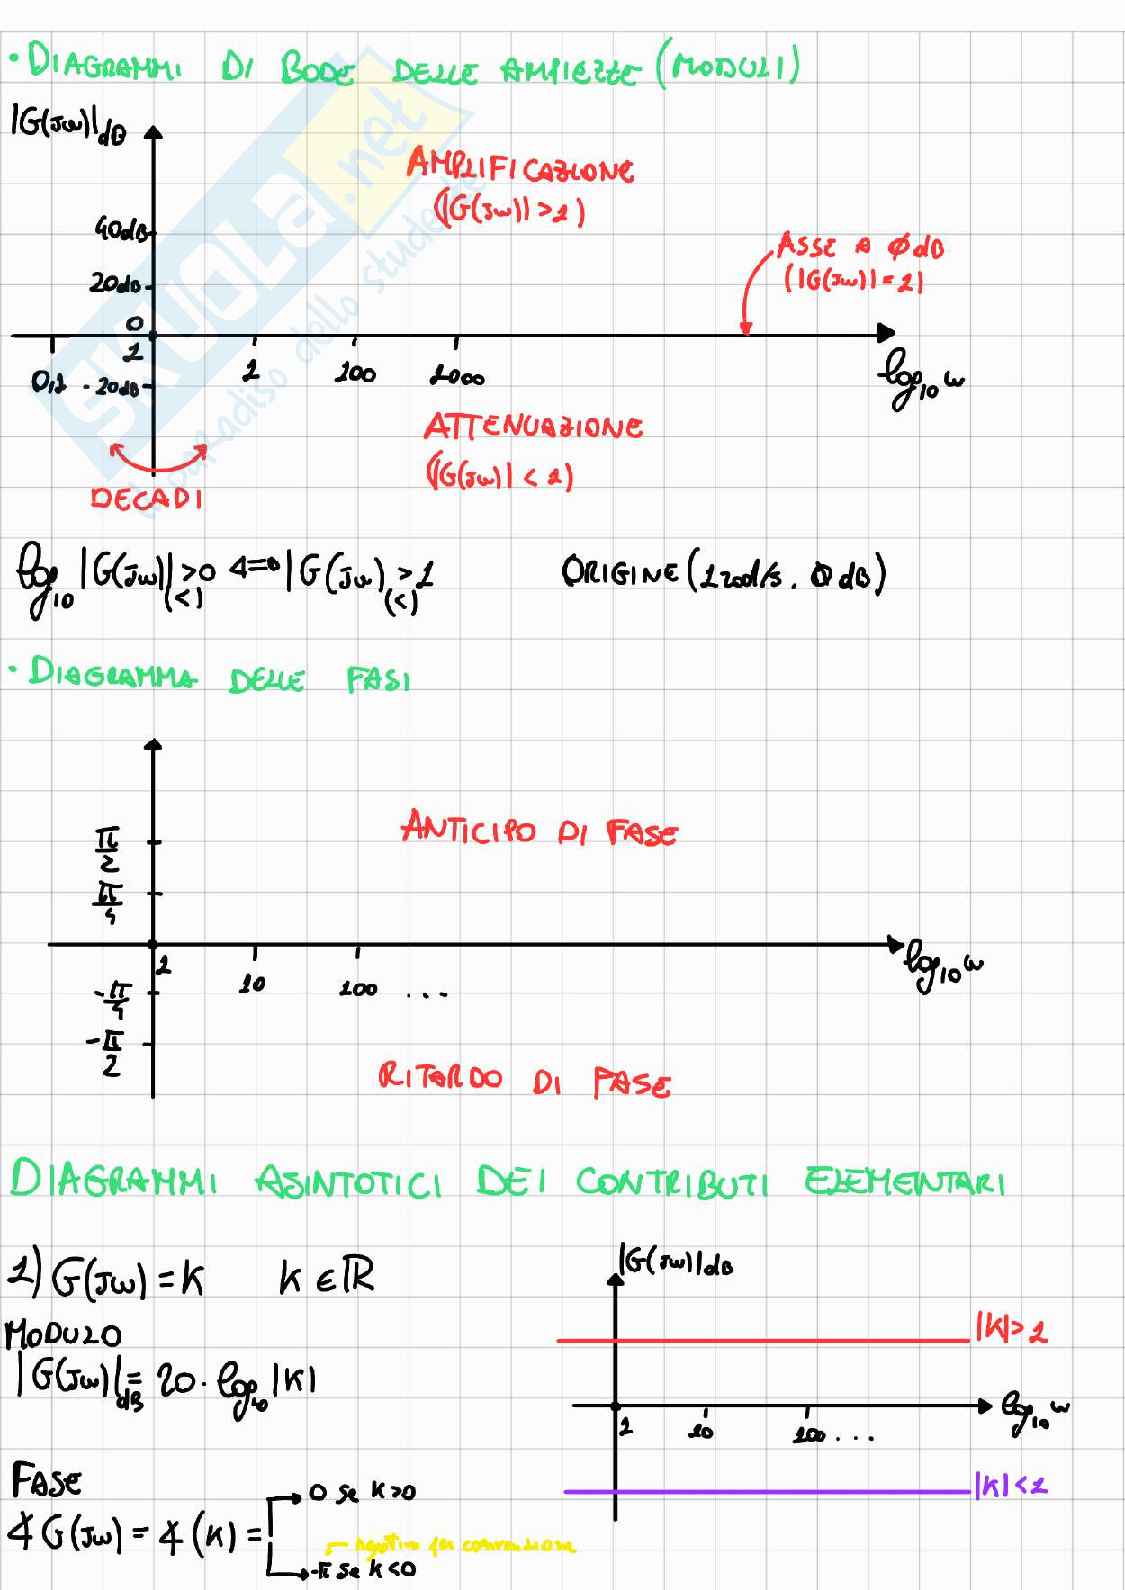 • DIAGRAMMI DI BODE DELLE AMPIEZZE (MODULI)
|G(jω)|dB
AMPLIFICAZIONE
(|G(jω)| > 1)
40dB
ASSE A ØdB
(|G(jω)| = 1|
20dB
0
1
0,1
-20dB
1
100
1000
log10 ω
ATTENUAZIONE
(|G(jω)| < 1)
DECADI
log10 |G(jω)| > 0 <=> |G(jω) > 1
(<) (<)
ORIGINE (1 rad/s . 0 dB)
• DIAGRAMMA DELLE FASI
ANTICIPO DI FASE
π/2
π/4
1
10
100 ...
log10 ω
-π/4
-π/2
RITARDO DI FASE
DIAGRAMMI ASINTOTICI DEI CONTRIBUTI ELEMENTARI
1) G(jω) = K K ∈ ℝ
|G(jω)|dB
MODULO
|K| > 1
|G(jω)|dB = 20 · log10 |K|
1
10
100 ...
log10 ω
FASE
|K| < 1
0 se K>0
∡ G(jω) = ∡ (K) =
negativo per convenzione
-π se K<0
SKUOLA.net